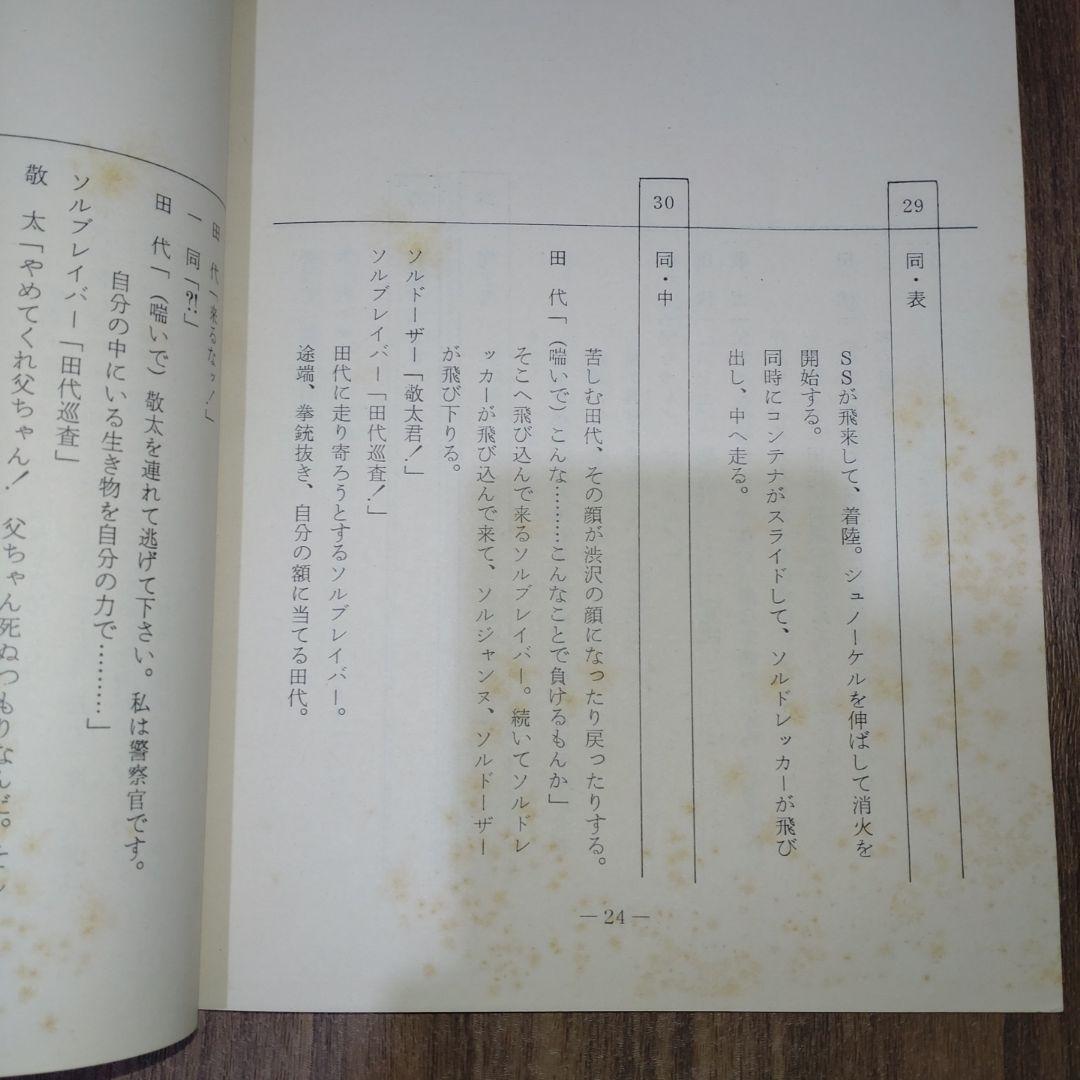 29
同・表
SSが飛来して、着陸。シュノーケルを伸ばして消火を
開始する。
同時にコンテナがスライドして、ソルドレッカーが飛び
出し、中へ走る。
30
同・中
苦しむ田代、その顔が渋沢の顔になったり戻ったりする。
田代「(喘いで)こんな………こんなことで負けるもんか」
そこへ飛び込んで来るソルブレイバー。続いてソルドレ
ッカーが飛び込んで来て、ソルジャンヌ、ソルドーザー
が飛び下りる。
ソルドーザー「敬太君!」
ソルブレイバー「田代巡査!」
田代に走り寄ろうとするソルブレイバー。
途端、拳銃抜き、自分の額に当てる田代。
—24—
田代「来るなッ!」
一同「?!」
田代「(喘いで)敬太を連れて逃げて下さい。私は警察官です。
自分の中にいる生き物を自分の力で………」
ソルブレイバー「田代巡査」
敬太「やめてくれ父ちゃん! 父ちゃん死ぬつもりなんだ。